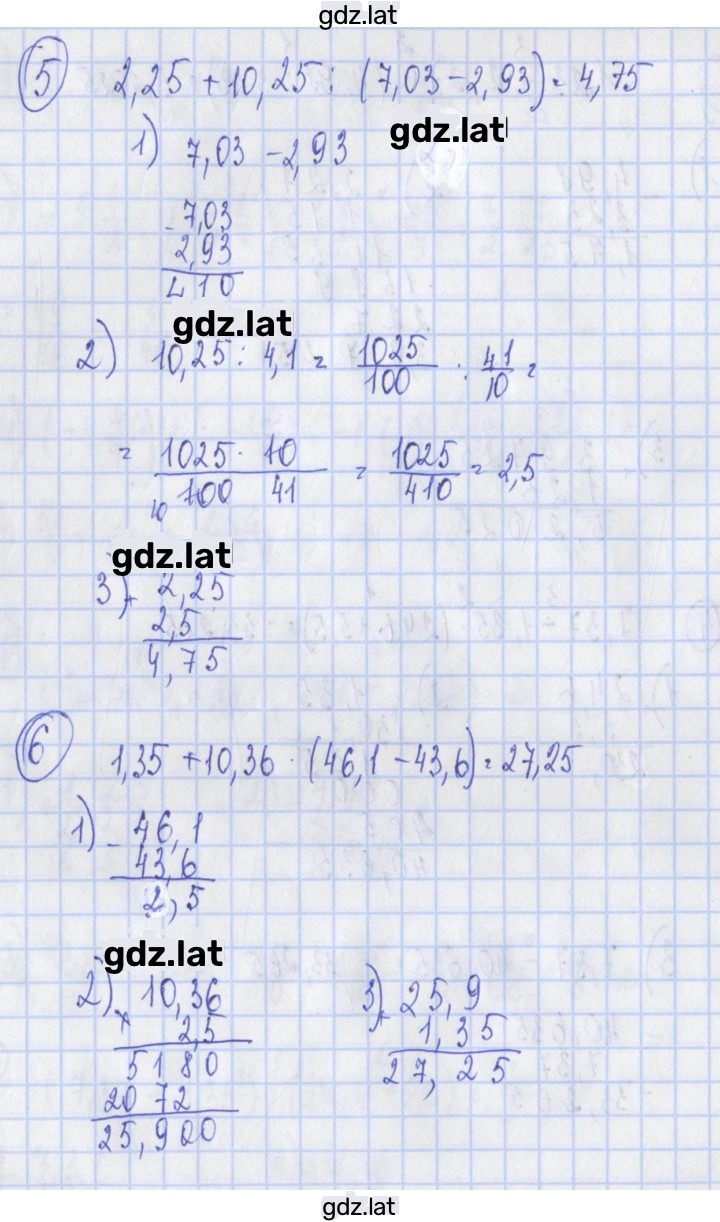 gdz.lat
5 2,25 + 10,25 : (7,03 - 2,93) = 4,75
gdz.lat
1) 7,03 - 2,93
- 7,03
2,93
4 10
gdz.lat
2) 10,25 : 4,1 = 1025/100 : 41/10 =
= 1025 · 10 / 100 41 = 1025/410 = 2,5
10
gdz.lat
3) + 2,25
2,5
4,75
6 1,35 + 10,36 · (46,1 - 43,6) = 27,25
1) - 46,1
43,6
2,5
gdz.lat
2) × 10,36
2,5
5180
2072
25,900
3) + 25,9
1,35
27,25
gdz.lat